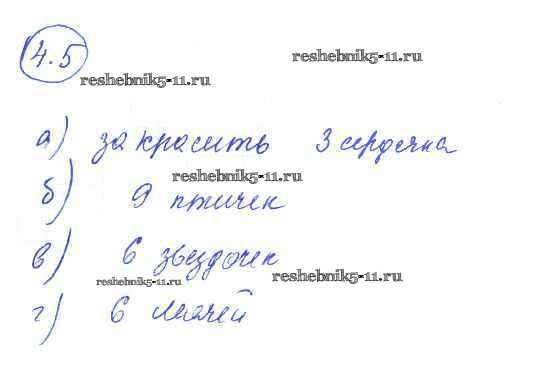 4.5
reshebnik5-11.ru
reshebnik5-11.ru
а) закрасить 3 сердечка
reshebnik5-11.ru
б) 9 птичек
в) 6 звездочек
reshebnik5-11.ru
reshebnik5-11.ru
г) 6 мячей